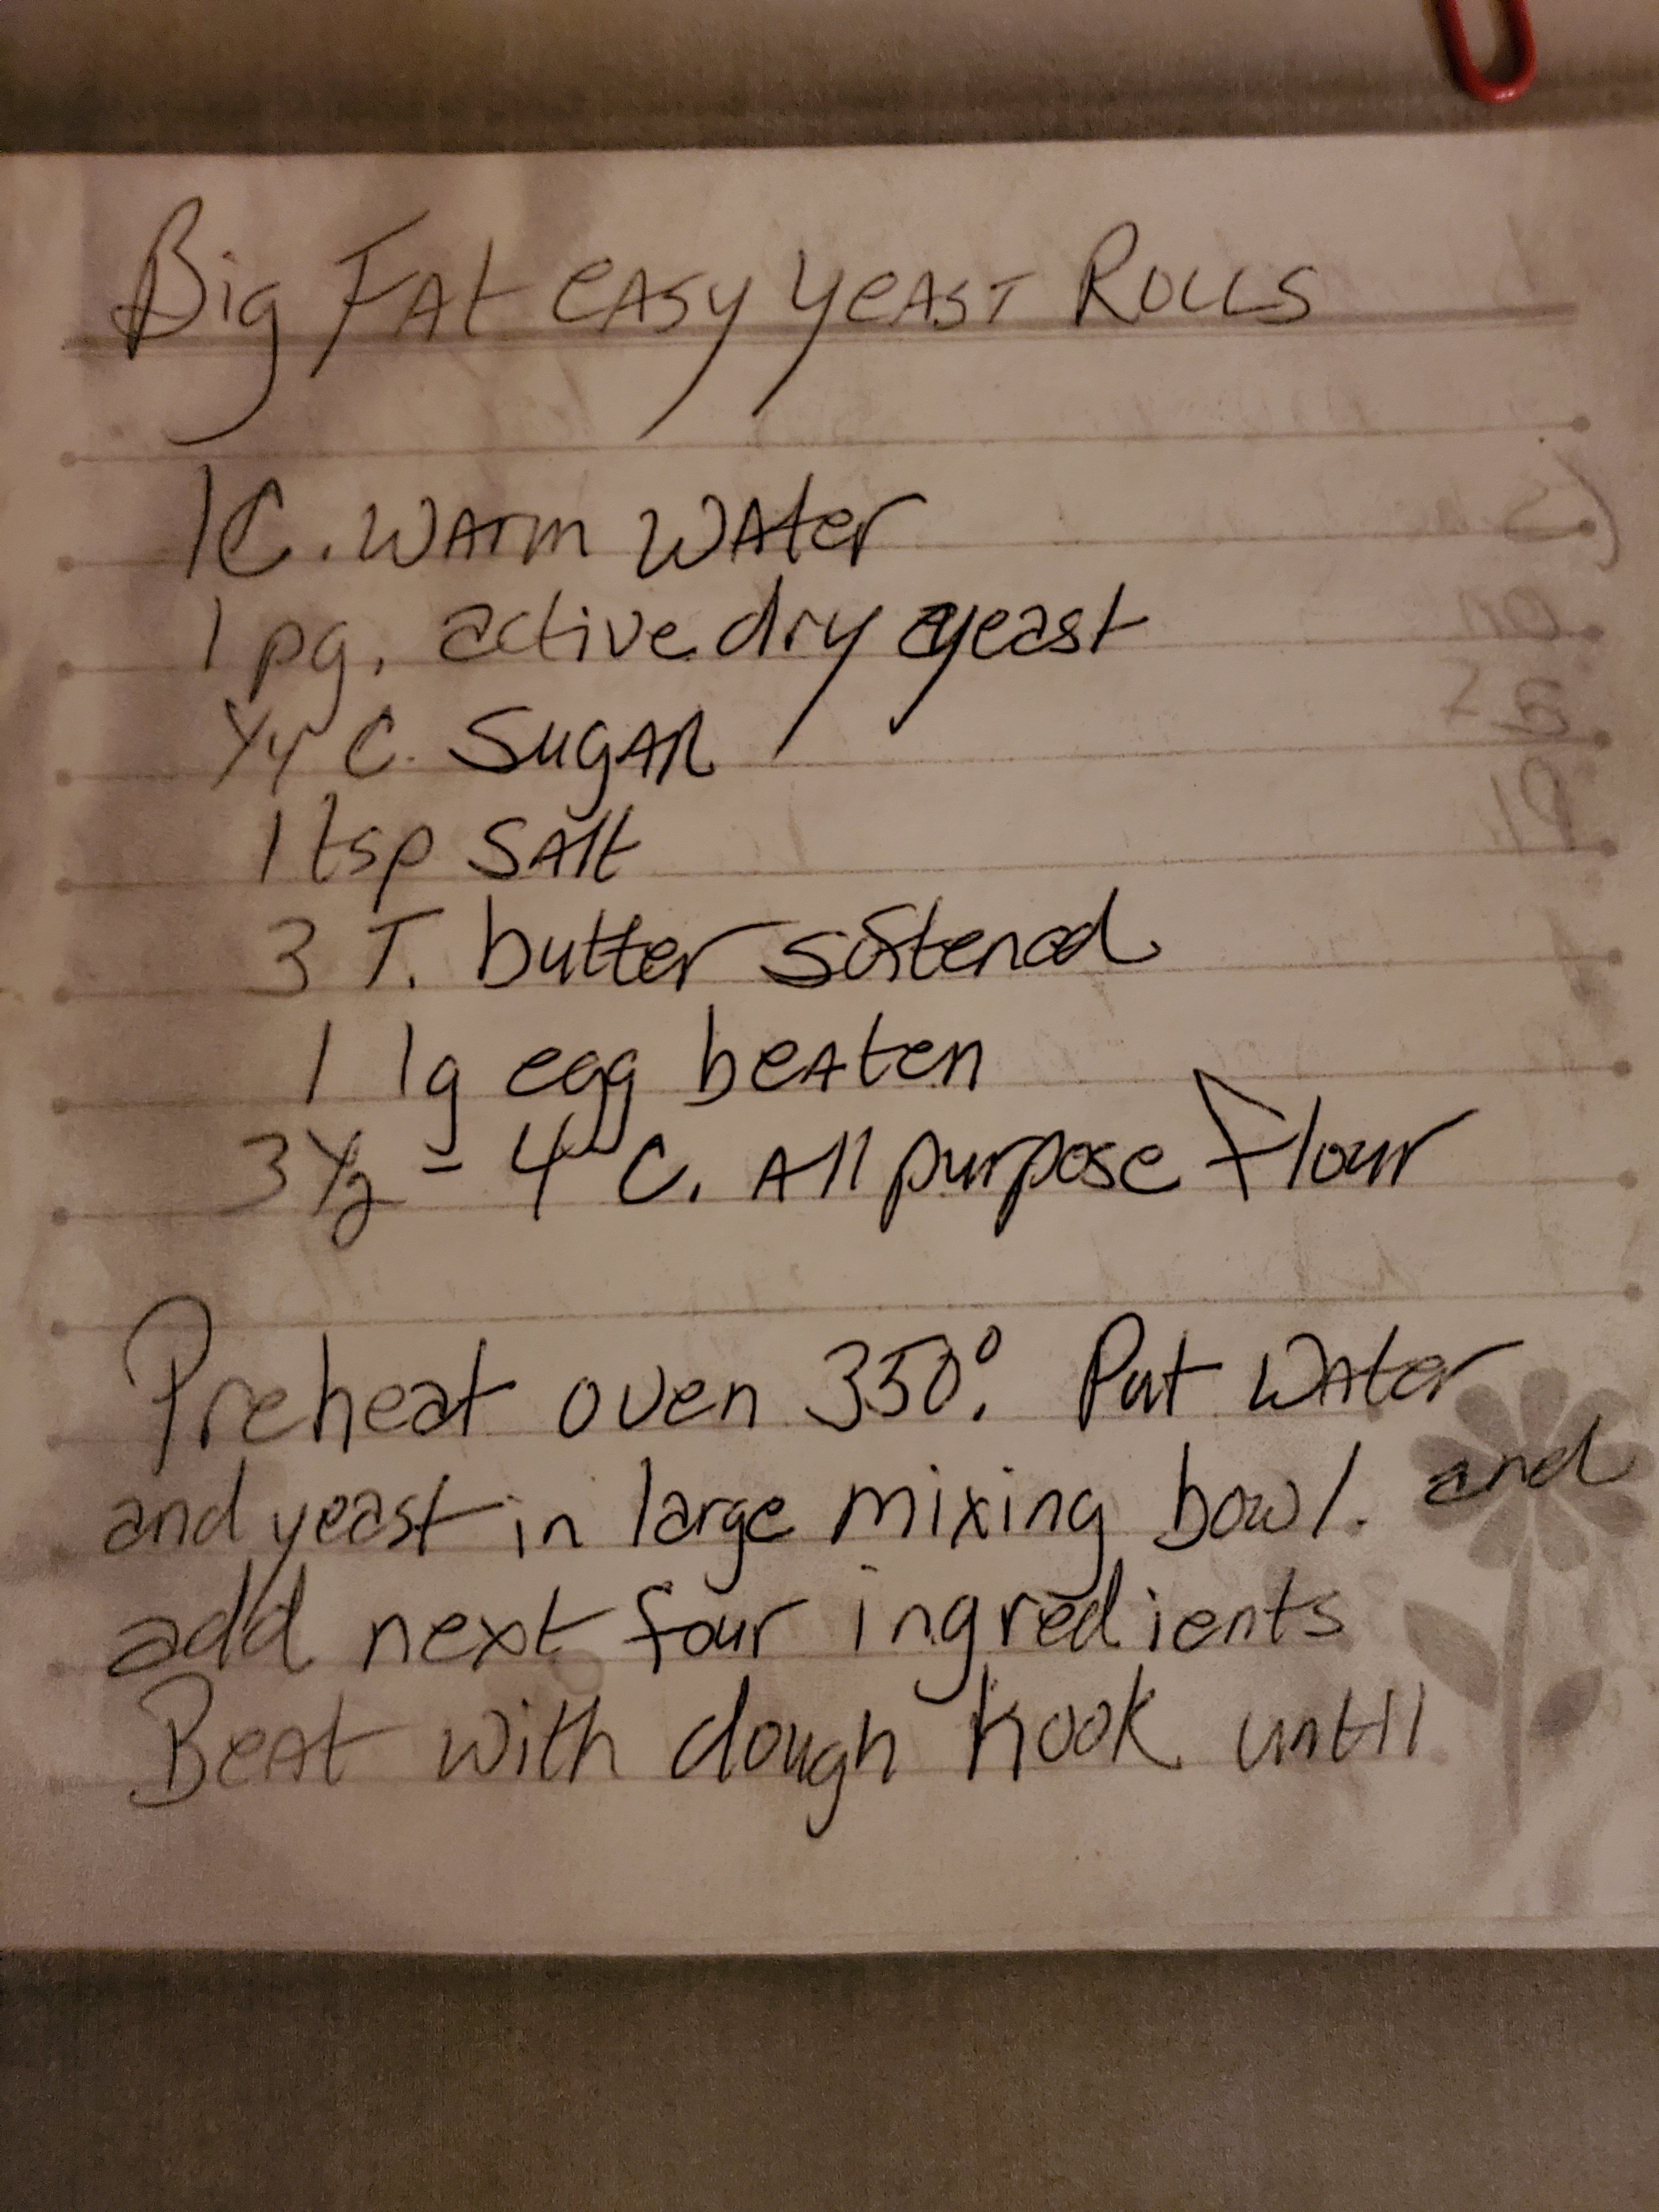 Big Fat easy yeast Rolls
1 C. Warm Water
1 pg. active dry yeast
1/4 C. Sugar
1 tsp Salt
3 T. butter softened
1 lg egg beaten
3 1/2 - 4 C. All purpose Flour
Preheat oven 350°. Put Water
and yeast in large mixing bowl. and
add next four ingredients
Beat with dough hook until